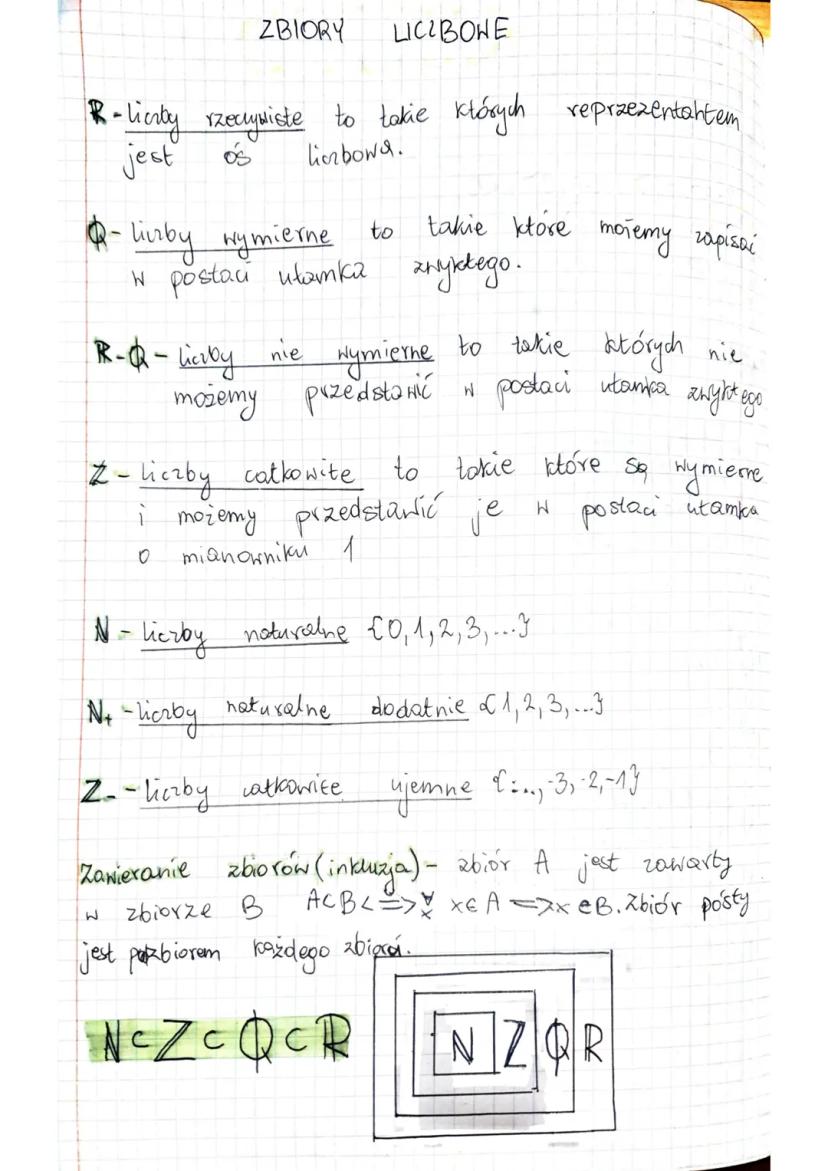 ZBIORY LICZBOWE
R - liczby rzeczywiste to takie których reprzezentantem
jest oś liczbowa.
Q - liczby wymierne to takie które możemy zapisać
w postaci ułamka zwykłego.
R-Q - liczby nie wymierne to takie których nie
możemy przedstawić w postaci ułamka zwykłego
Z - liczby całkowite to takie które są wymierne
i możemy przedstawić je w postaci ułamka
o mianowniku 1
N - liczby naturalne {0,1,2,3,...}
N+ - liczby naturalne dodatnie {1,2,3,...}
Z- - liczby całkowite ujemne {...,-3,-2,-1}
Zawieranie zbiorów (inkluzja) - zbiór A jest zawarty
w zbiorze B A⊂B <=> ∀x x∈A => x∈B. Zbiór pósty
jest podzbiorem każdego zbioru.
N⊂Z⊂Q⊂R
N Z Q R